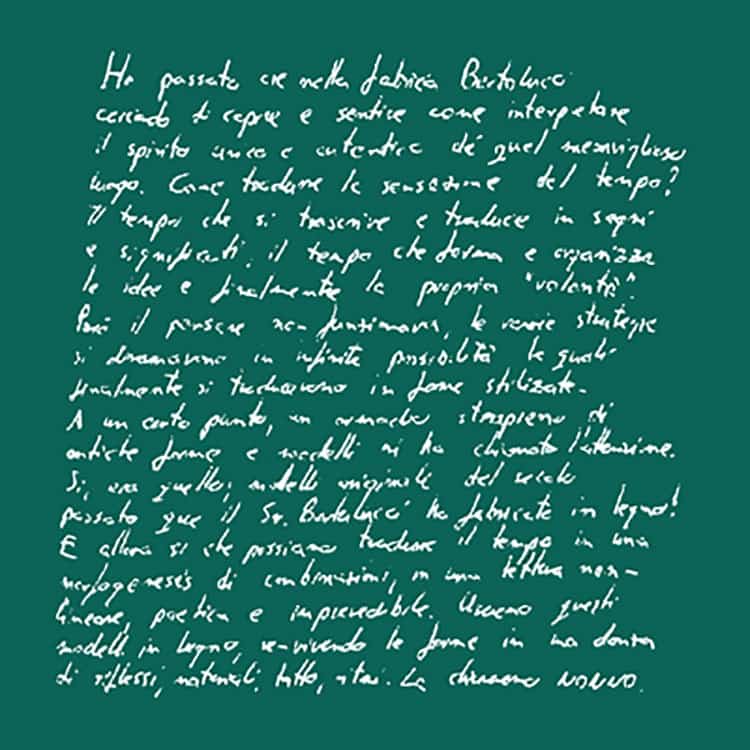 Ho passato ore nella fabrica Bertolucci
cercando di capire e sentire come interpetare
il spirito unico e autentico de quel meraviglioso
luogo. Come tradurre la sensazione del tempo?
Il tempo che si trascrive e traduce in segni
e significati, il tempo che forma e organizza
le idee e finalmente la propria "volontà".
Però il pensare non funzionava, le varie strategie
si diramavano in infinite possibilità le quali
finalmente si traducevano in forme stilizate.
A un certo punto, un armadio strapieno di
antiche forme e modelli mi ha chiamato l'attenzione.
Si, era quello; modelli originali del secolo
passato que il Sr. Bertolucci ha fabricate in legno!
E allora si che possiamo tradurre il tempo in una
morfogenesis di combinazioni, in una lettura non-
lineare, poetica e imprevedibile. Usiamo questi
modelli in legno, re-vivendo le forme in una danza
di riflessi, materiali, tatto, ritmi. La chiamamo NONNO.